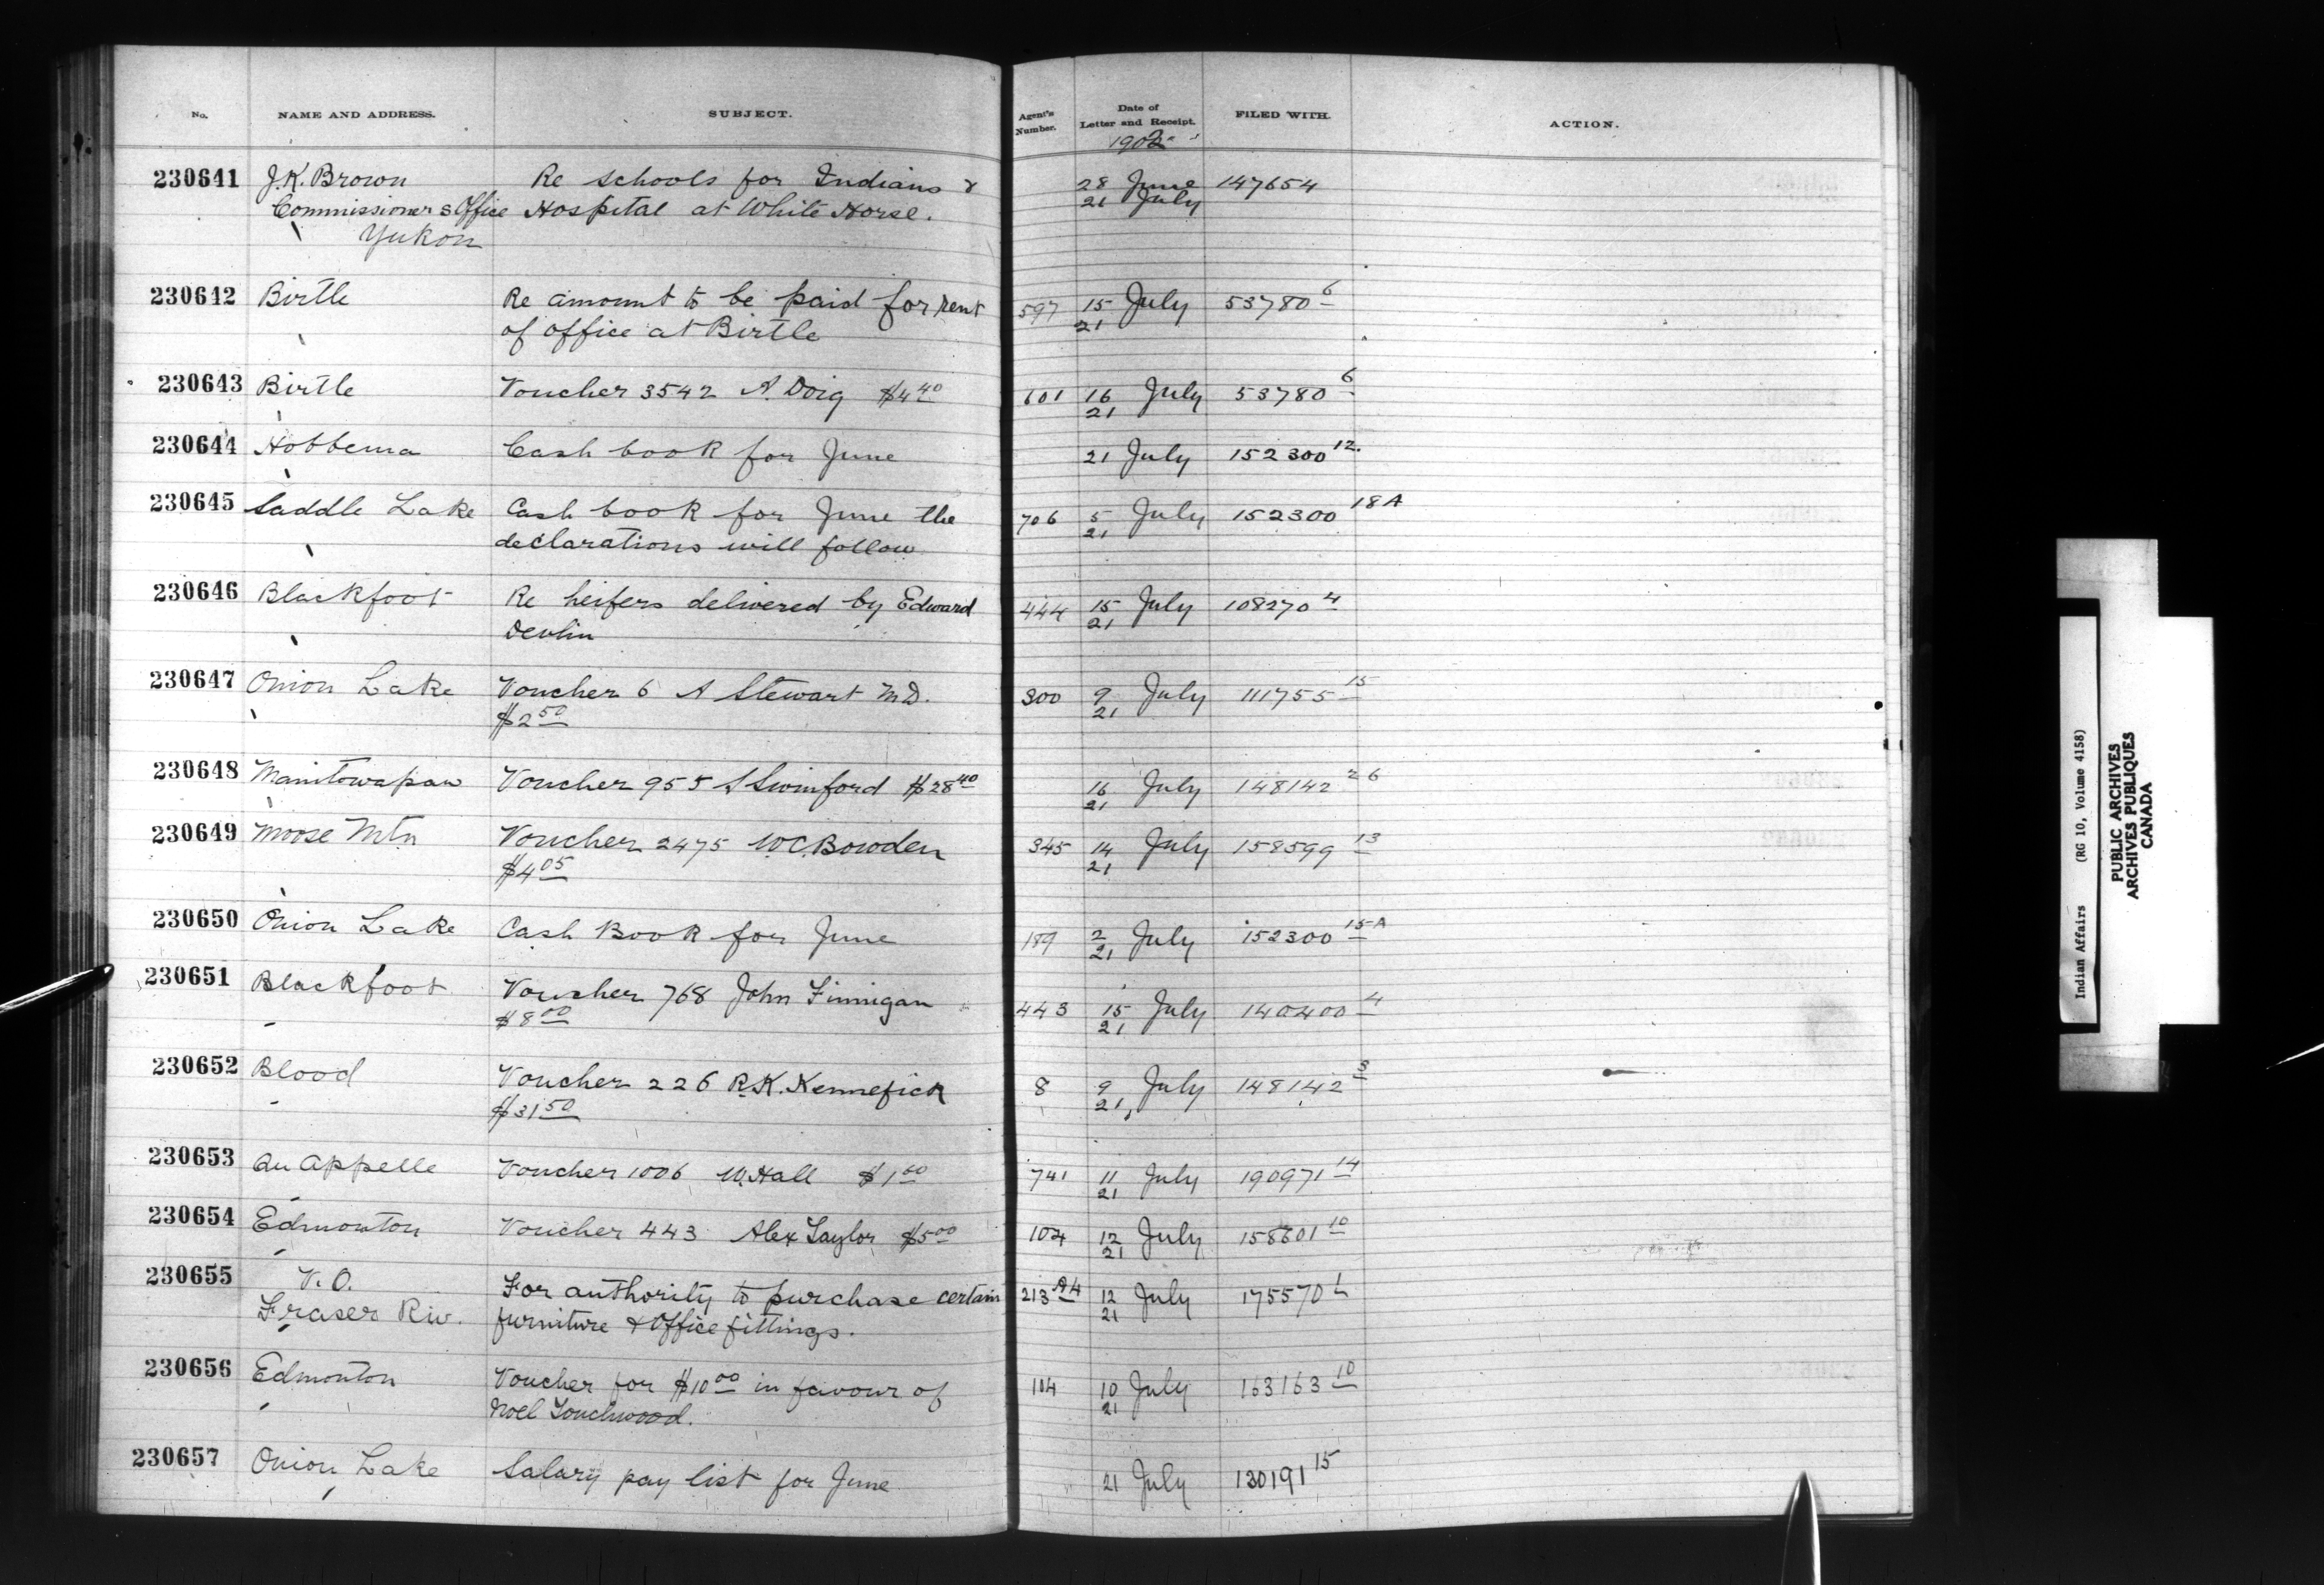 No. NAME AND ADDRESS. SUBJECT. Agent's Number. Date of Letter and Receipt. FILED WITH. ACTION.
1902
230641 J.K. Brown Re schools for Indians & 28 June 147654
Commissioners Office Hospital at White Horse. 21 July
Yukon
230642 Birtle Re amount to be paid for rent 597 15 July 53780 6
of office at Birtle 21
230643 Birtle Voucher 3542 A. Doig $4 40 601 16 July 53780 6
21
230644 Hobbema Cash book for June 21 July 152300 12.
230645 Saddle Lake Cash book for June the 706 5 July 152300 18A
declarations will follow 21
230646 Blackfoot Re heifers delivered by Edward 444 15 July 108270 4
Devlin 21
230647 Onion Lake Voucher 6 A Stewart M.D. 300 9 July 111755 15
$2 50 21
230648 Manitowapaw Voucher 955 S Swinford $28 40 16 July 148142 26
21
230649 Moose Mtn Voucher 2475 W.C. Bowden 345 14 July 158599 13
$4 05 21
230650 Onion Lake Cash Book for June 189 2 July 152300 15-A
21
230651 Blackfoot Voucher 768 John Finnigan 443 15 July 140400 4
$8 00 21
230652 Blood Voucher 226 R.K. Kennefick 8 9 July 148142
$31 50 21
230653 Qu Appelle Voucher 1006 W. Hall $1 741 11 July 190971 14
21
230654 Edmonton Voucher 443 Alex Taylor $5 00 102 12 July 158601 10
21
230655 V. O. For authority to purchase certain 213 12 July 175570
Fraser Riv. furniture & Office fittings. 21
230656 Edmonton Voucher for $10 00 in favour of 104 10 July 163163 10
Noel Touchwood. 21
230657 Onion Lake Salary pay list for June 21 July 130191 15
Indian Affairs (RG 10, Volume 4158)
PUBLIC ARCHIVES
ARCHIVES PUBLIQUES
CANADA